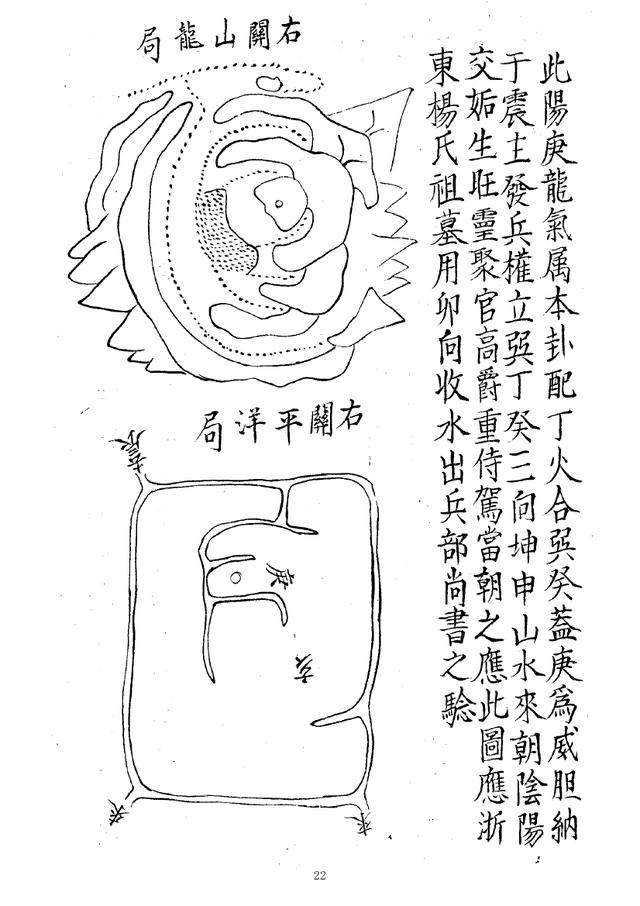 此陽庚龍氣属本卦配丁火合巽癸葢庚爲威胆納
于震主發兵權立巽丁癸三向坤申山水來朝陰陽
交姤生旺靈聚官高爵重侍駕當朝之應此圖應浙
東楊氏祖墓用卯向收水出兵部尚書之騐
右關山龍局
右關平洋局
去辰
庚
亥
22